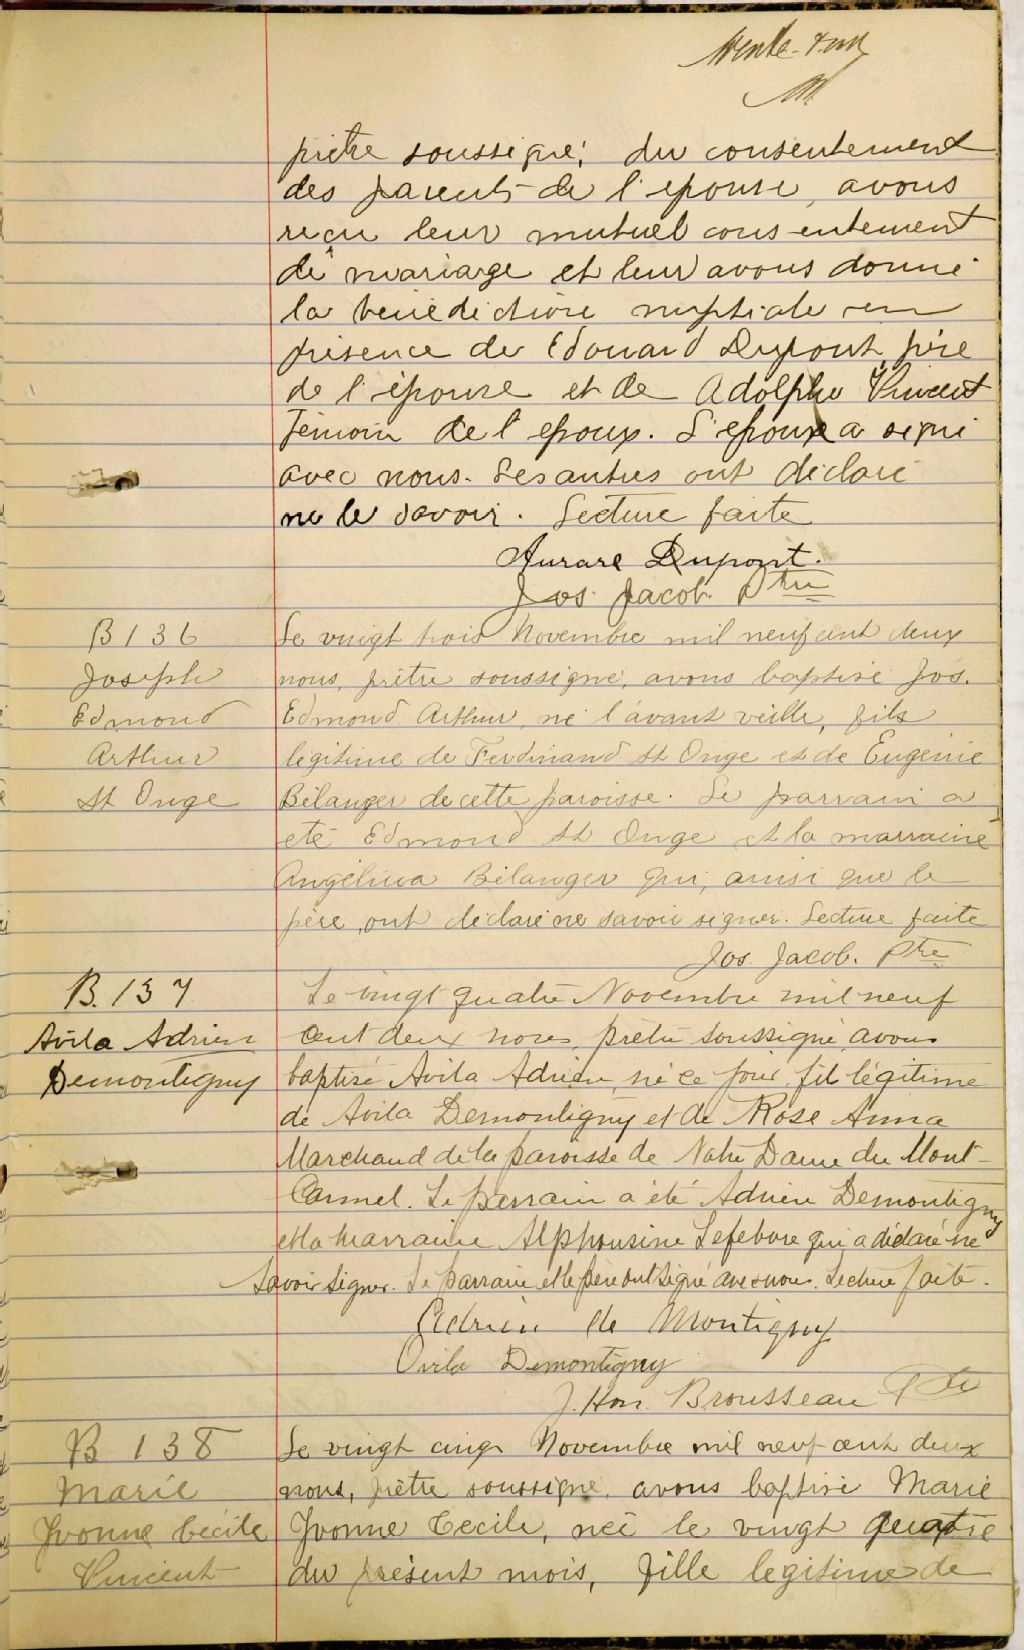 trente-&-un
prêtre soussigné, du consentement
des parents de l'épouse, avons
reçu leur mutuel consentement
de mariage et leur avons donné
la bénédiction nuptiale en
présence de Edouard Dupont, père
de l'épouse et de Adolphe Vincent
témoin de l'époux. L'épouse a signé
avec nous. Les autres ont déclaré
ne le savoir. Lecture faite
Aurore Dupont.
Jos. Jacob Ptre
B 136
Joseph
Edmond
Arthur
St Onge
Le vingt trois Novembre mil neuf cent deux
nous, prêtre soussigné, avons baptisé Jos.
Edmond Arthur, né l'avant veille, fils
légitime de Ferdinand St Onge et de Eugénie
Bélanger de cette paroisse. Le parrain a
été Edmond St Onge et la marraine
Angélina Bélanger qui, ainsi que le
père, ont déclaré ne savoir signer. Lecture faite
Jos. Jacob. Ptre
B. 137
Avila Adrien
Demontigny
Le vingt quatre Novembre mil neuf
cent deux nous, prêtre soussigné avons
baptisé Avila Adrien, né ce jour, fil légitime
de Avila Demontigny et de Rose Anna
Marchand de la paroisse de Notre Dame du Mont-
Carmel. Le parrain a été Adrien Demontigny
et la marraine Alphonsine Lefebvre qui a déclaré ne
savoir signer. Le parrain et le père ont signé avec nous. Lecture faite.
Adrien de Montigny
Ovila Demontigny
J. Hon. Brousseau Ptre
B 138
Marie
Yvonne Cécile
Vincent
Le vingt cinq Novembre mil neuf cent deux
nous, prêtre soussigné, avons baptisé Marie
Yvonne Cecile, née le vingt quatre
du présent mois, fille legitime de